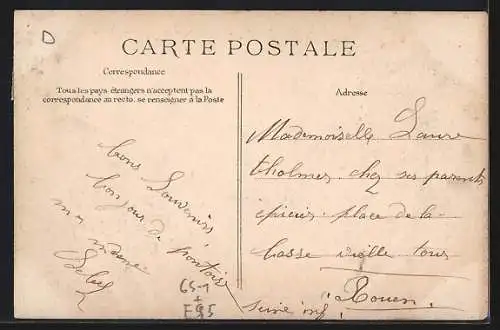 D
CARTE POSTALE
Correspondance
Tous les pays étrangers n'acceptent pas la
correspondance au recto. se renseigner à la Poste
Adresse
bons Souvenirs
bonjour de pontoise
Mademoiselle Laure
tholmer chez ses parents
épicier place de la
basse vielle tour
Rouen
seine inf